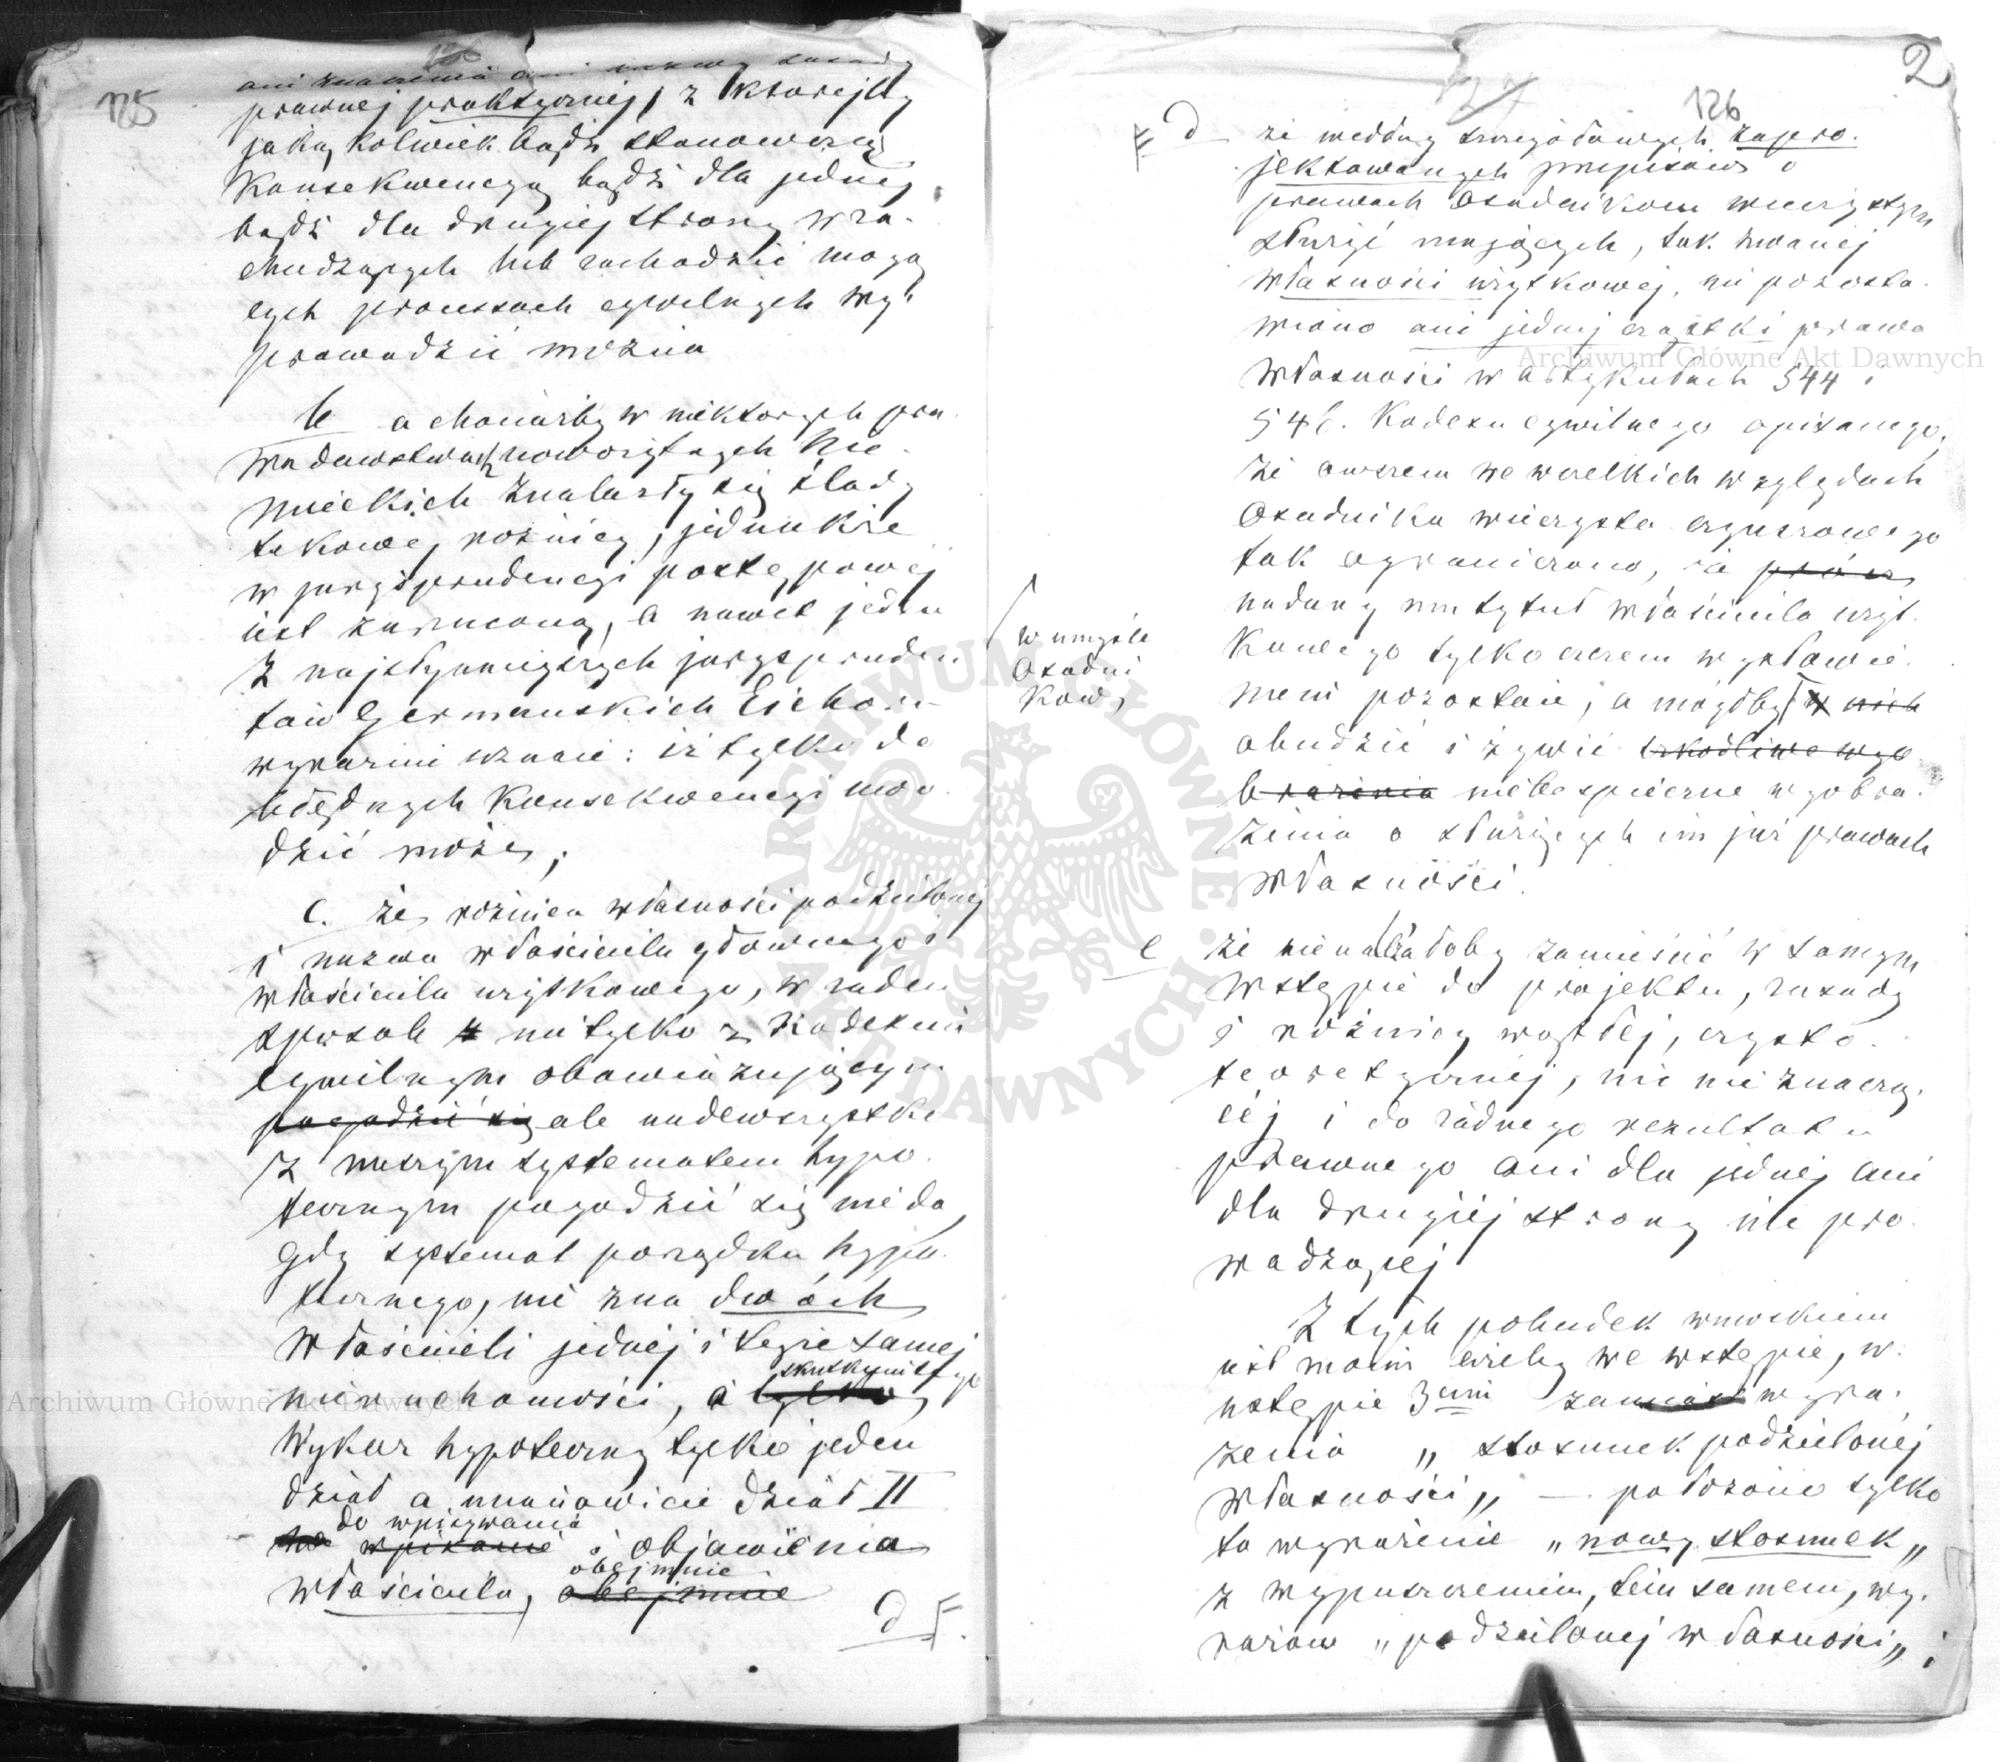 125
ani znaczenia ani
prawnej praktycznej, z którejby
jaką kolwiek bądź stanowczą
Konsekwencyą bądź dla jednej
bądź dla drugiej strony w za-
chodzących lub zachodzić mogą
cych processach cywilnych wy
prowadzić można
b a chociażby w niektorych pra
wodawstwach nowożytnych Nie-
mieckich znalazły się ślady
takowej rożnicy, jednakże
w jurysprudencyi postępowej
jest zarzucona, a nawet jeden
z najsłynniejszych jurysprudent
tów Germanskich Eichorn
wyraźnie uznaie: iż tylko do
błędnych Konsekwencyi uwo
dzić może;
c. że rożnica własności podzielonej
i nazwa właściciela głownego i
właściciela użytkowego, w żaden
sposob nie tylko z Kodexem
cywilnym obowiązującym
pogodzić się ale nadewszystko
z naszym systematem hypo-
tecznym pogodzić się nie da,
gdy systemat porządku hypo-
tecznego, nie zna dwóch
Właścicieli jednej i tejże samej
skutkiem tego
nieruchomości, a tylko
Wykaz hypoteczny tylko jeden
dział a mianowicie dział II
do wpisywania
na wpisanie i objawienia
obejmuie
właściciela, obejmuie
d
2
126
d że według szczegółowych zapro-
jektowanych przepisów o
prawach Osadnikom wieczystym
służyć mających, tak zwanej
własności użytkowej, nie pozosta-
wiono ani jednej cząstki prawa
Własności w Artykułach 544 i
546. Kodexu cywilnego opisanego,
że owszem we wszelkich względach
Osadnika wieczysto czynszowego
tak ograniczono, iż
nadany mu tytuł właściciela użyt-
kowego tylko czczem wysłowie-
niem pozostaie, a mógłby w nich
w umyśle
Osadni
ków,
obudzić i żywić szkodliwe wyo
brażenia niebespieczne wyobra-
żenia o służących im już prawach
własności.
e że nienależałoby zamieścić w samym
Wstępie do projektu, zasady
i różnicy wątłej, czysto-
teoretycznej, nic nie znaczą-
cej i do żadnego rezultatu
prawnego ani dla jednej ani
dla drugiej strony nie pro-
wadzącej
Z tych pobudek wnioskiem
jest moim ażeby we wstępie, w
ustępie 3cim zamiast wyra-
żenia „stosunek podzielonej
Własności„ — położono tylko
to wyrażenie „nowy stosunek„
z wypuszczeniem, tem samem, wy-
razów „podzielonej własności„ i